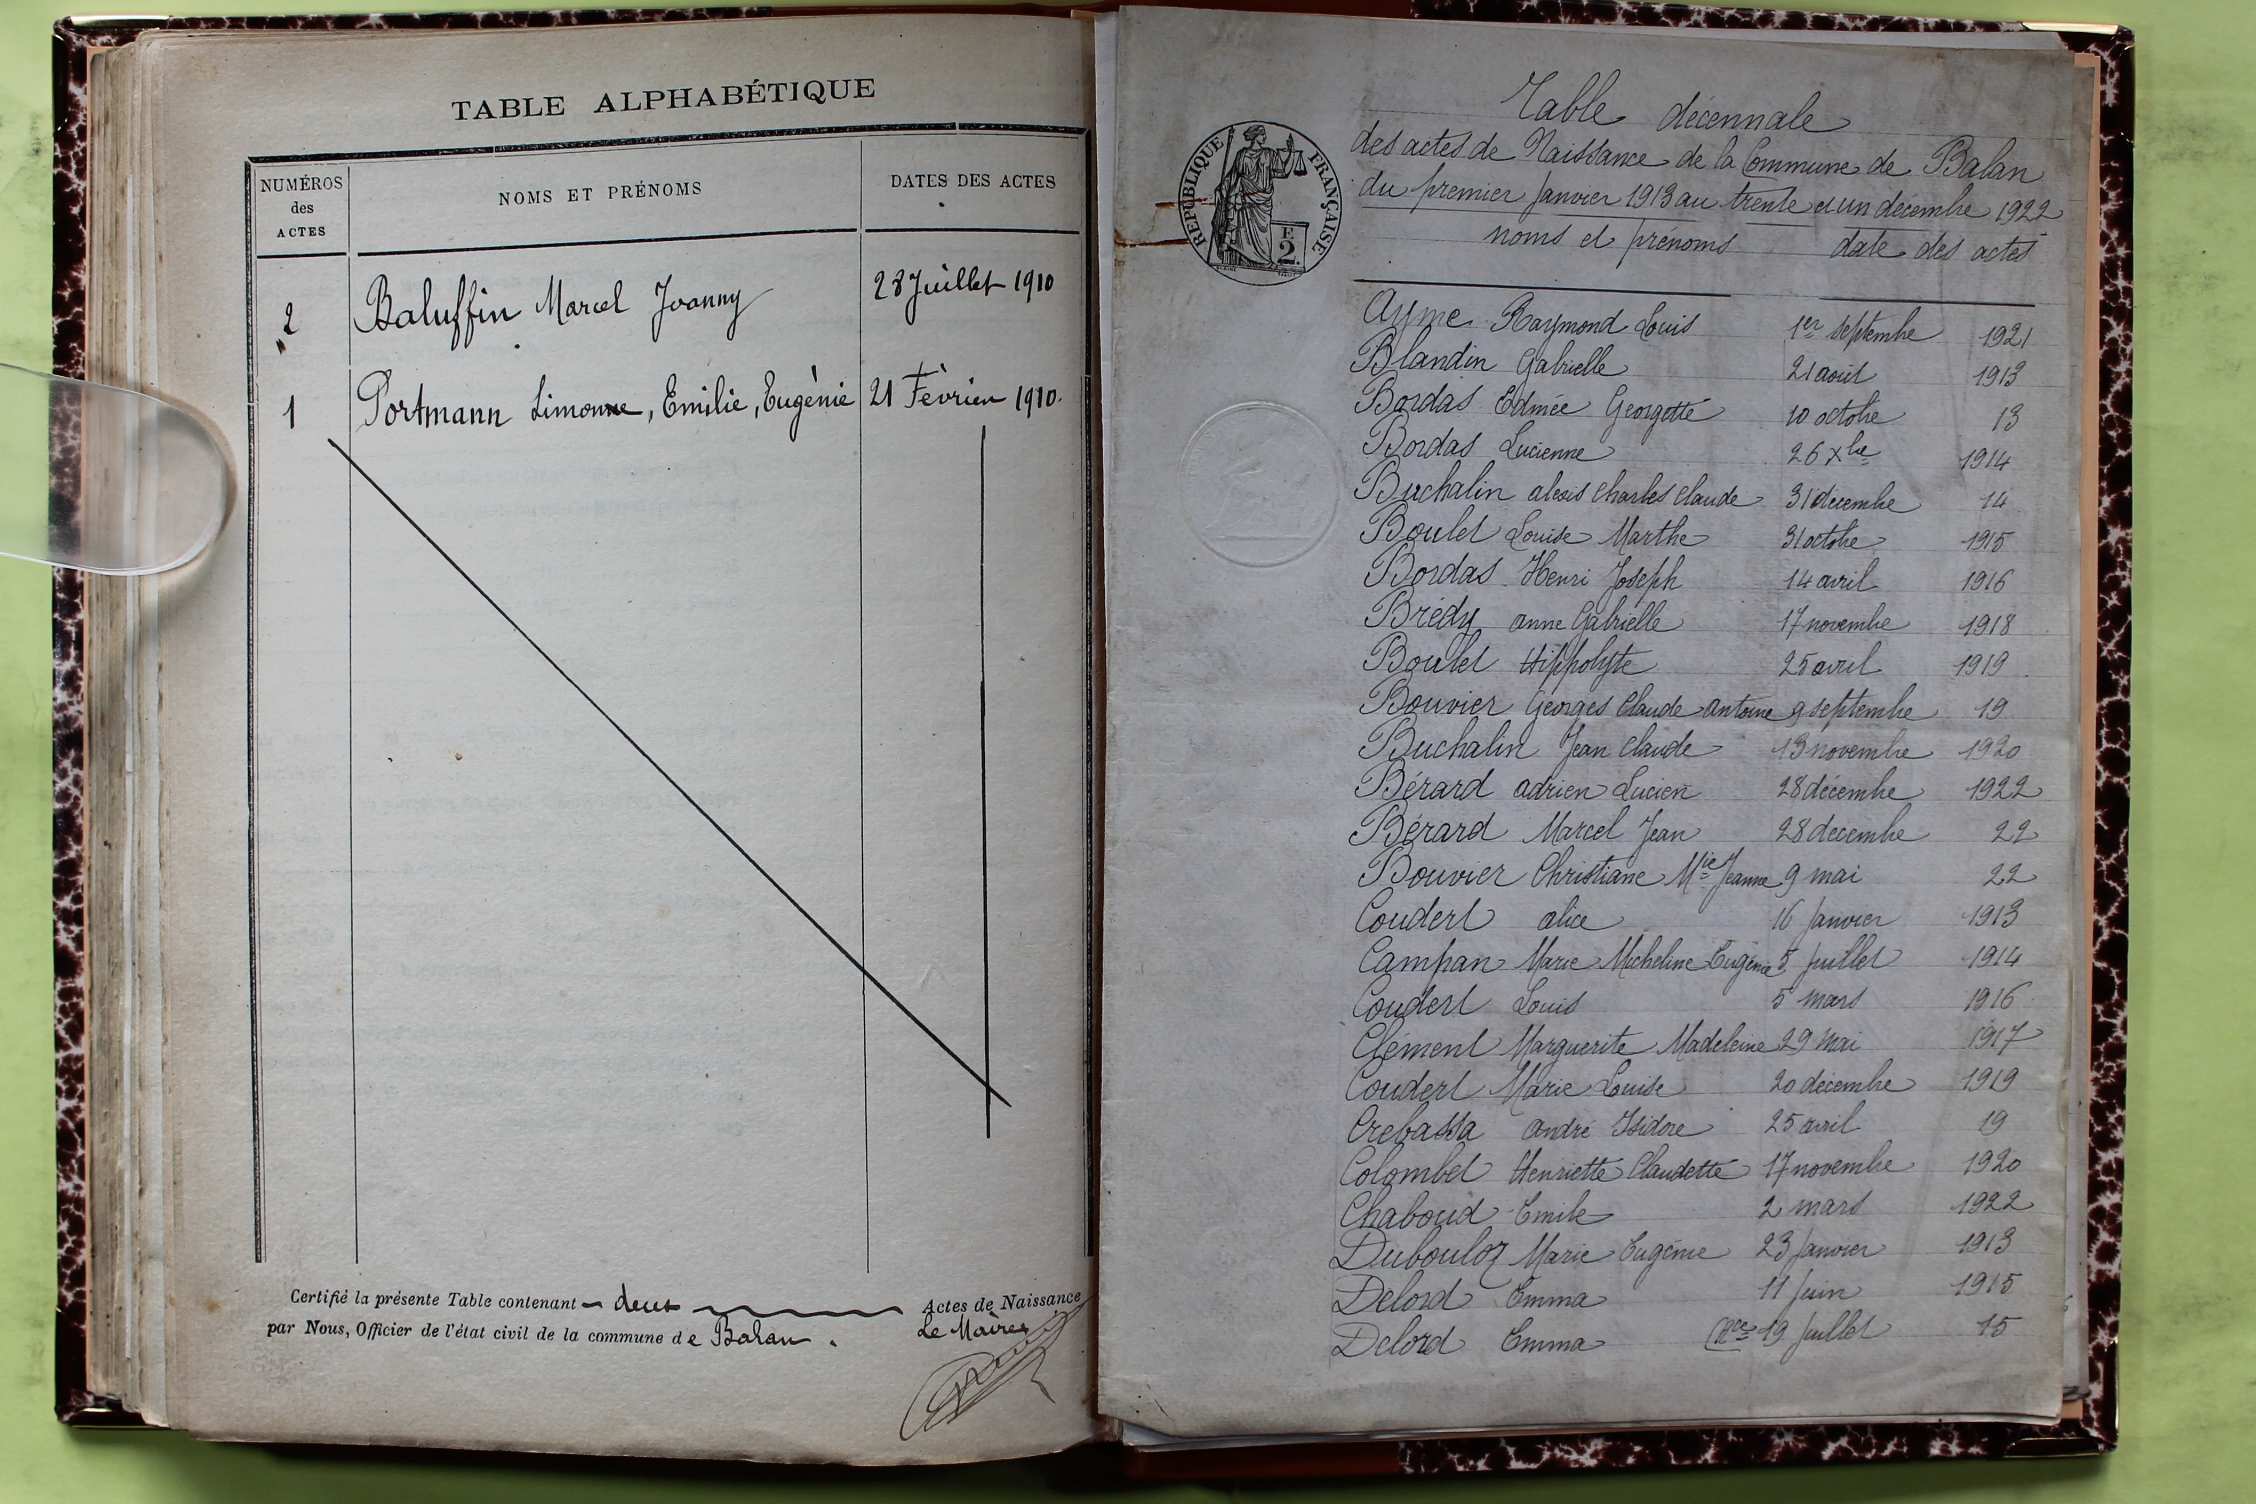 TABLE ALPHABÉTIQUE
NUMÉROS des ACTES NOMS ET PRÉNOMS DATES DES ACTES
2 Baluffin Marcel Joanny 28 Juillet 1910
1 Portmann Simonne, Emilie, Eugènie 21 Fèvrier 1910.
Certifié la présente Table contenant deux Actes de Naissance
par Nous, Officier de l'état civil de la commune de Balan. Le Maire
Table décennale
des actes de Naissance de la Commune de Balan
du premier Janvier 1913 au trente et un décembre 1922
noms et prénoms date des actes
RÉPUBLIQUE FRANÇAISE
F.
2.
Ayme Raymond Louis 1er septembre 1921
Blandin Gabrielle 21 août 1913
Bordas Edmée Georgette 10 octobre 13
Bordas Lucienne 26 Xbre 1914
Buchalin alexis Charles Claude 31 décembre 14
Boulet Louise Marthe 31 octobre 1915
Bordas Henri Joseph 14 avril 1916
Brédy anne Gabrielle 17 novembre 1918
Boulet Hippolyte 25 avril 1919
Bouvier Georges Claude antoine 9 septembre 19
Buchalin Jean Claude 13 novembre 1920
Bérard adrien Lucien 28 décembre 1922
Bérard Marcel Jean 28 décembre 22
Bouvier Christiane Mie Jeanne 9 mai 22
Coudert alice 16 Janvier 1913
Campan Marie Micheline Eugénie 5 Juillet 1914
Coudert Louis 5 mars 1916
Clément Marguerite Madeleine 29 Mai 1917
Coudert Marie Louise 20 décembre 1919
Crebassa andré Isidore 25 avril 19
Colombet Henriette Claudette 17 novembre 1920
Chaboud Emile 2 mars 1922
Dubouloz Marie Eugénie 23 Janvier 1913
Delord Emma 11 Juin 1915
Delord Emma Nce 19 Juillet 15